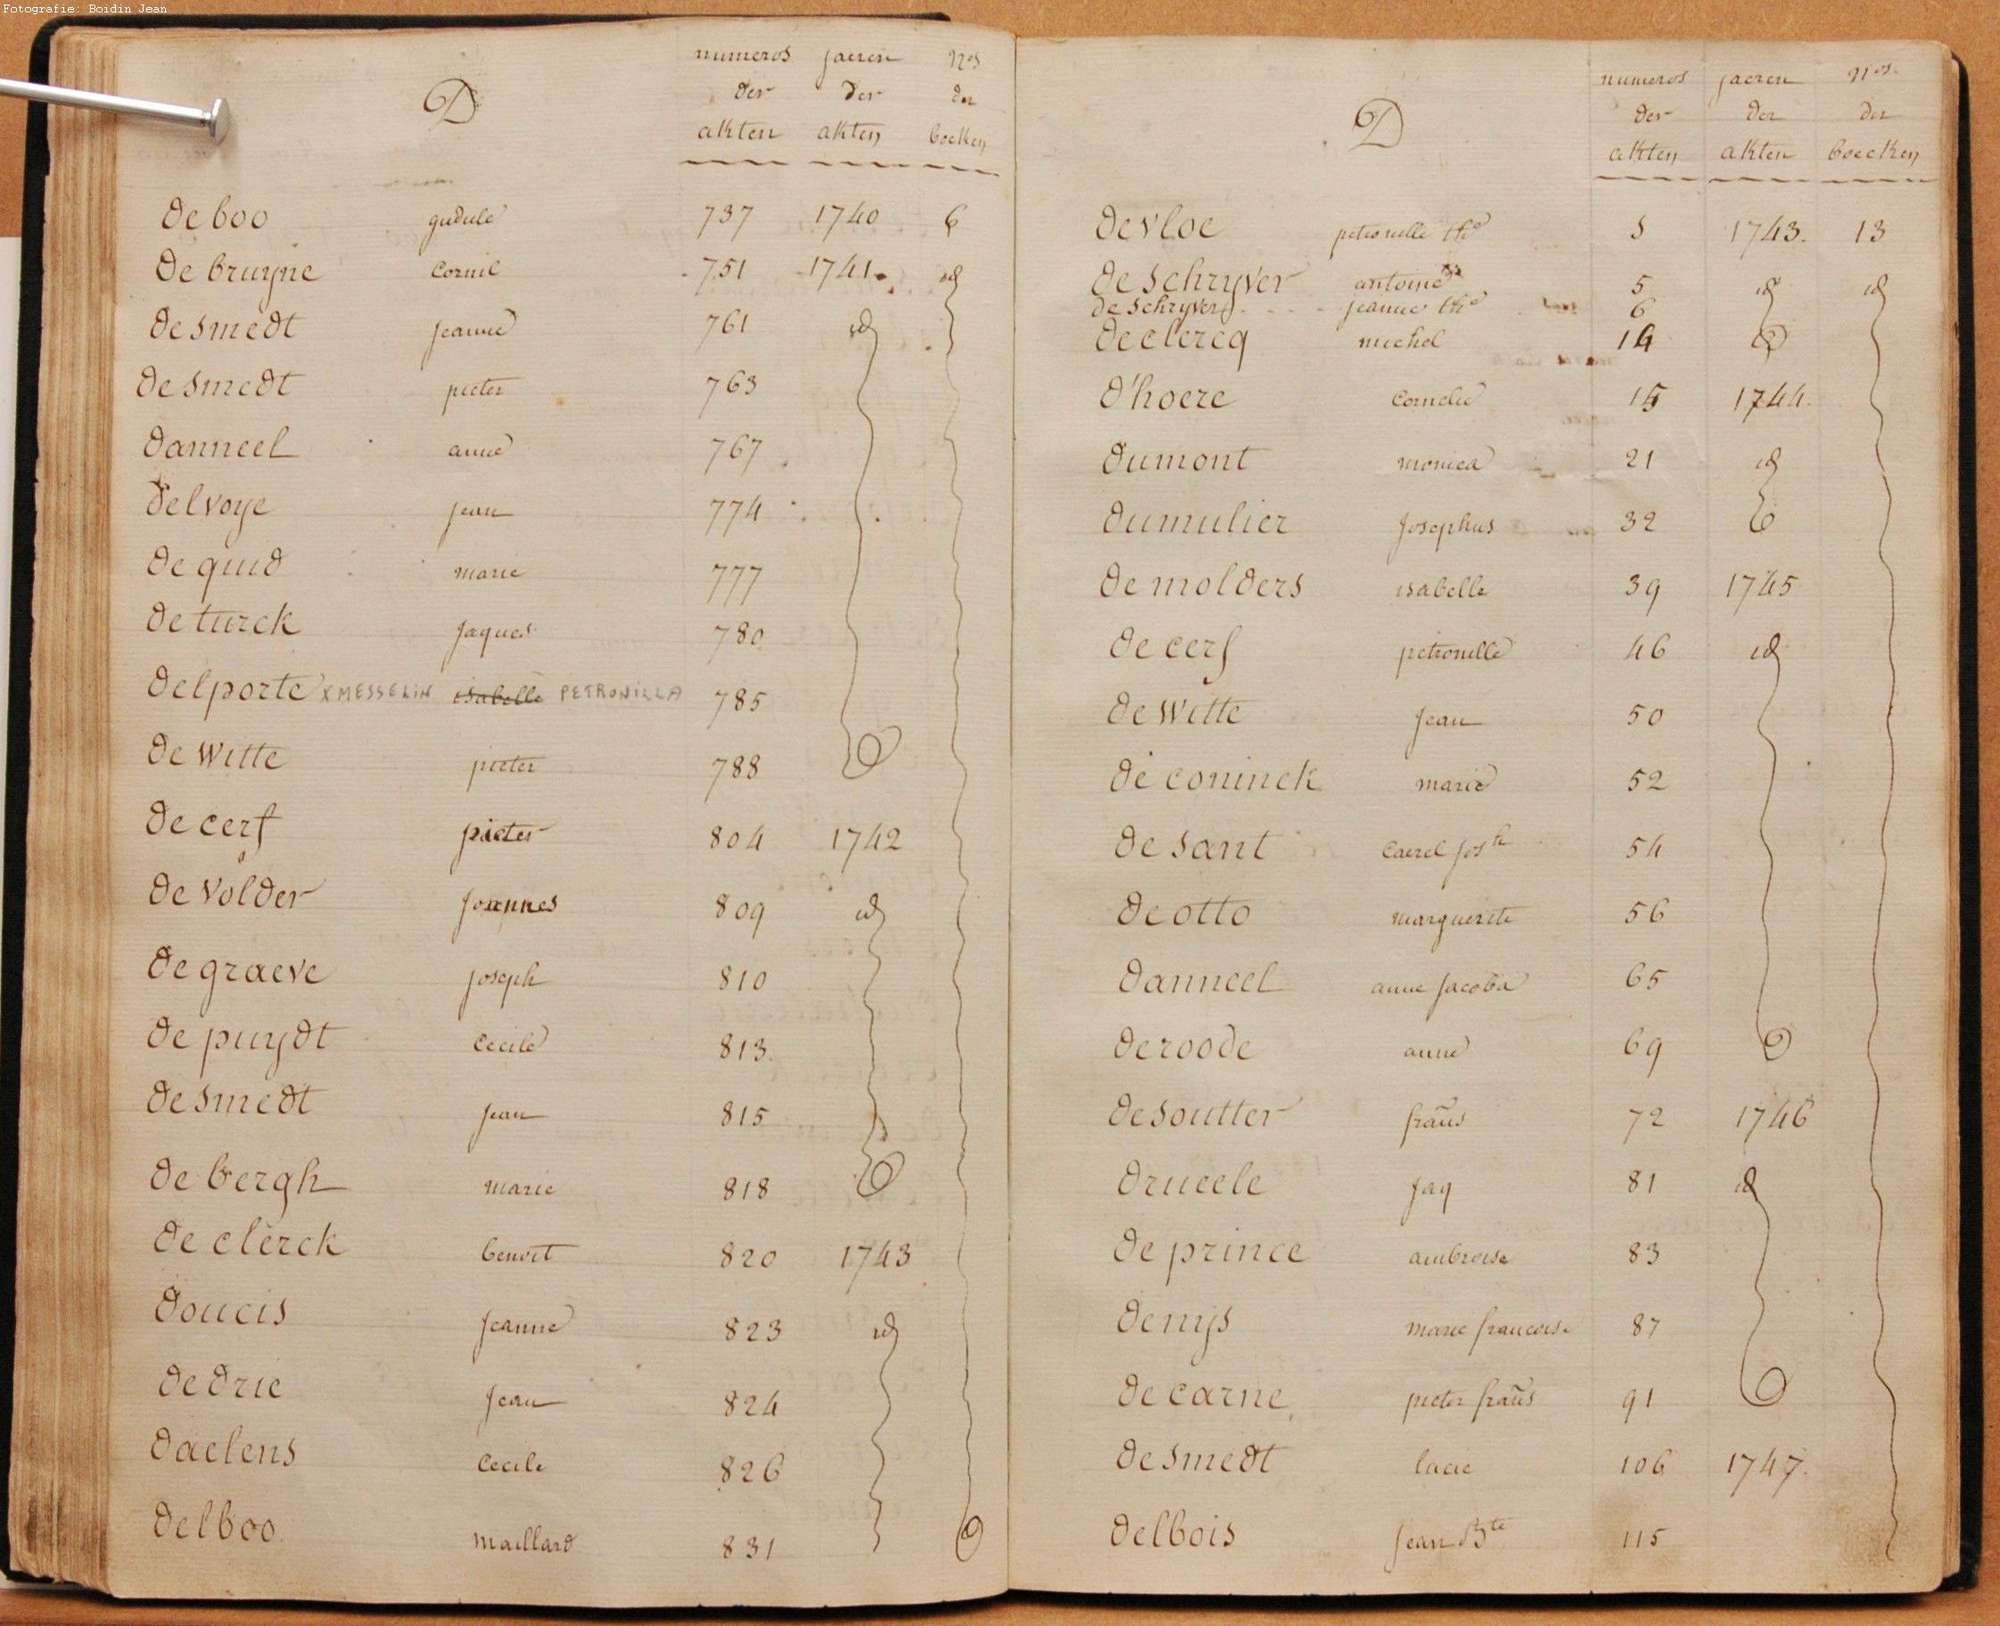 Fotografie: Boidin Jean
D
numeros jaeren Nos
der der der
akten akten boeken
de boo gudule 737 1740 6
de bruyne Cornil 751 1741 id
de smedt jeanne 761 id
de smedt pieter 763
danneel anne 767
delvoye jean 774
de quid marie 777
de turck jaques 780
delporte x MESSELIN isabelle PETRONILLA 785
de witte pieter 788
de cerf pieter 804 1742
de volder joannes 809 id
de graeve joseph 810
de puydt Cecile 813
de smedt jean 815
de bergh marie 818
de clerck benoit 820 1743
doucis jeanne 823 id
de drie jean 824
daelens Cecile 826
delboo maillard 831
D
numeros jaeren Nos.
der der der
akten akten boecken
devloe petronelle the 5 1743. 13
de schryver antoine 5 id id
de schryver jeanne the 6
de clercq michel 14
d'hoere Cornelie 15 1744.
dumont monica 21 id
dumulier josephus 32
de molders isabelle 39 1745
de cerf petronille 46 id
de witte jean 50
de coninck marie 52
de sant Caerel josh 54
de otto marguerite 56
danneel anne jacoba 65
deroode anne 69
desoutter frañs 72 1746
drueele jaq 81 id
de prince ambroise 83
denys marie francoise 87
de carne pieter frañs 91
de smedt lucie 106 1747.
delbois jean Bte 115